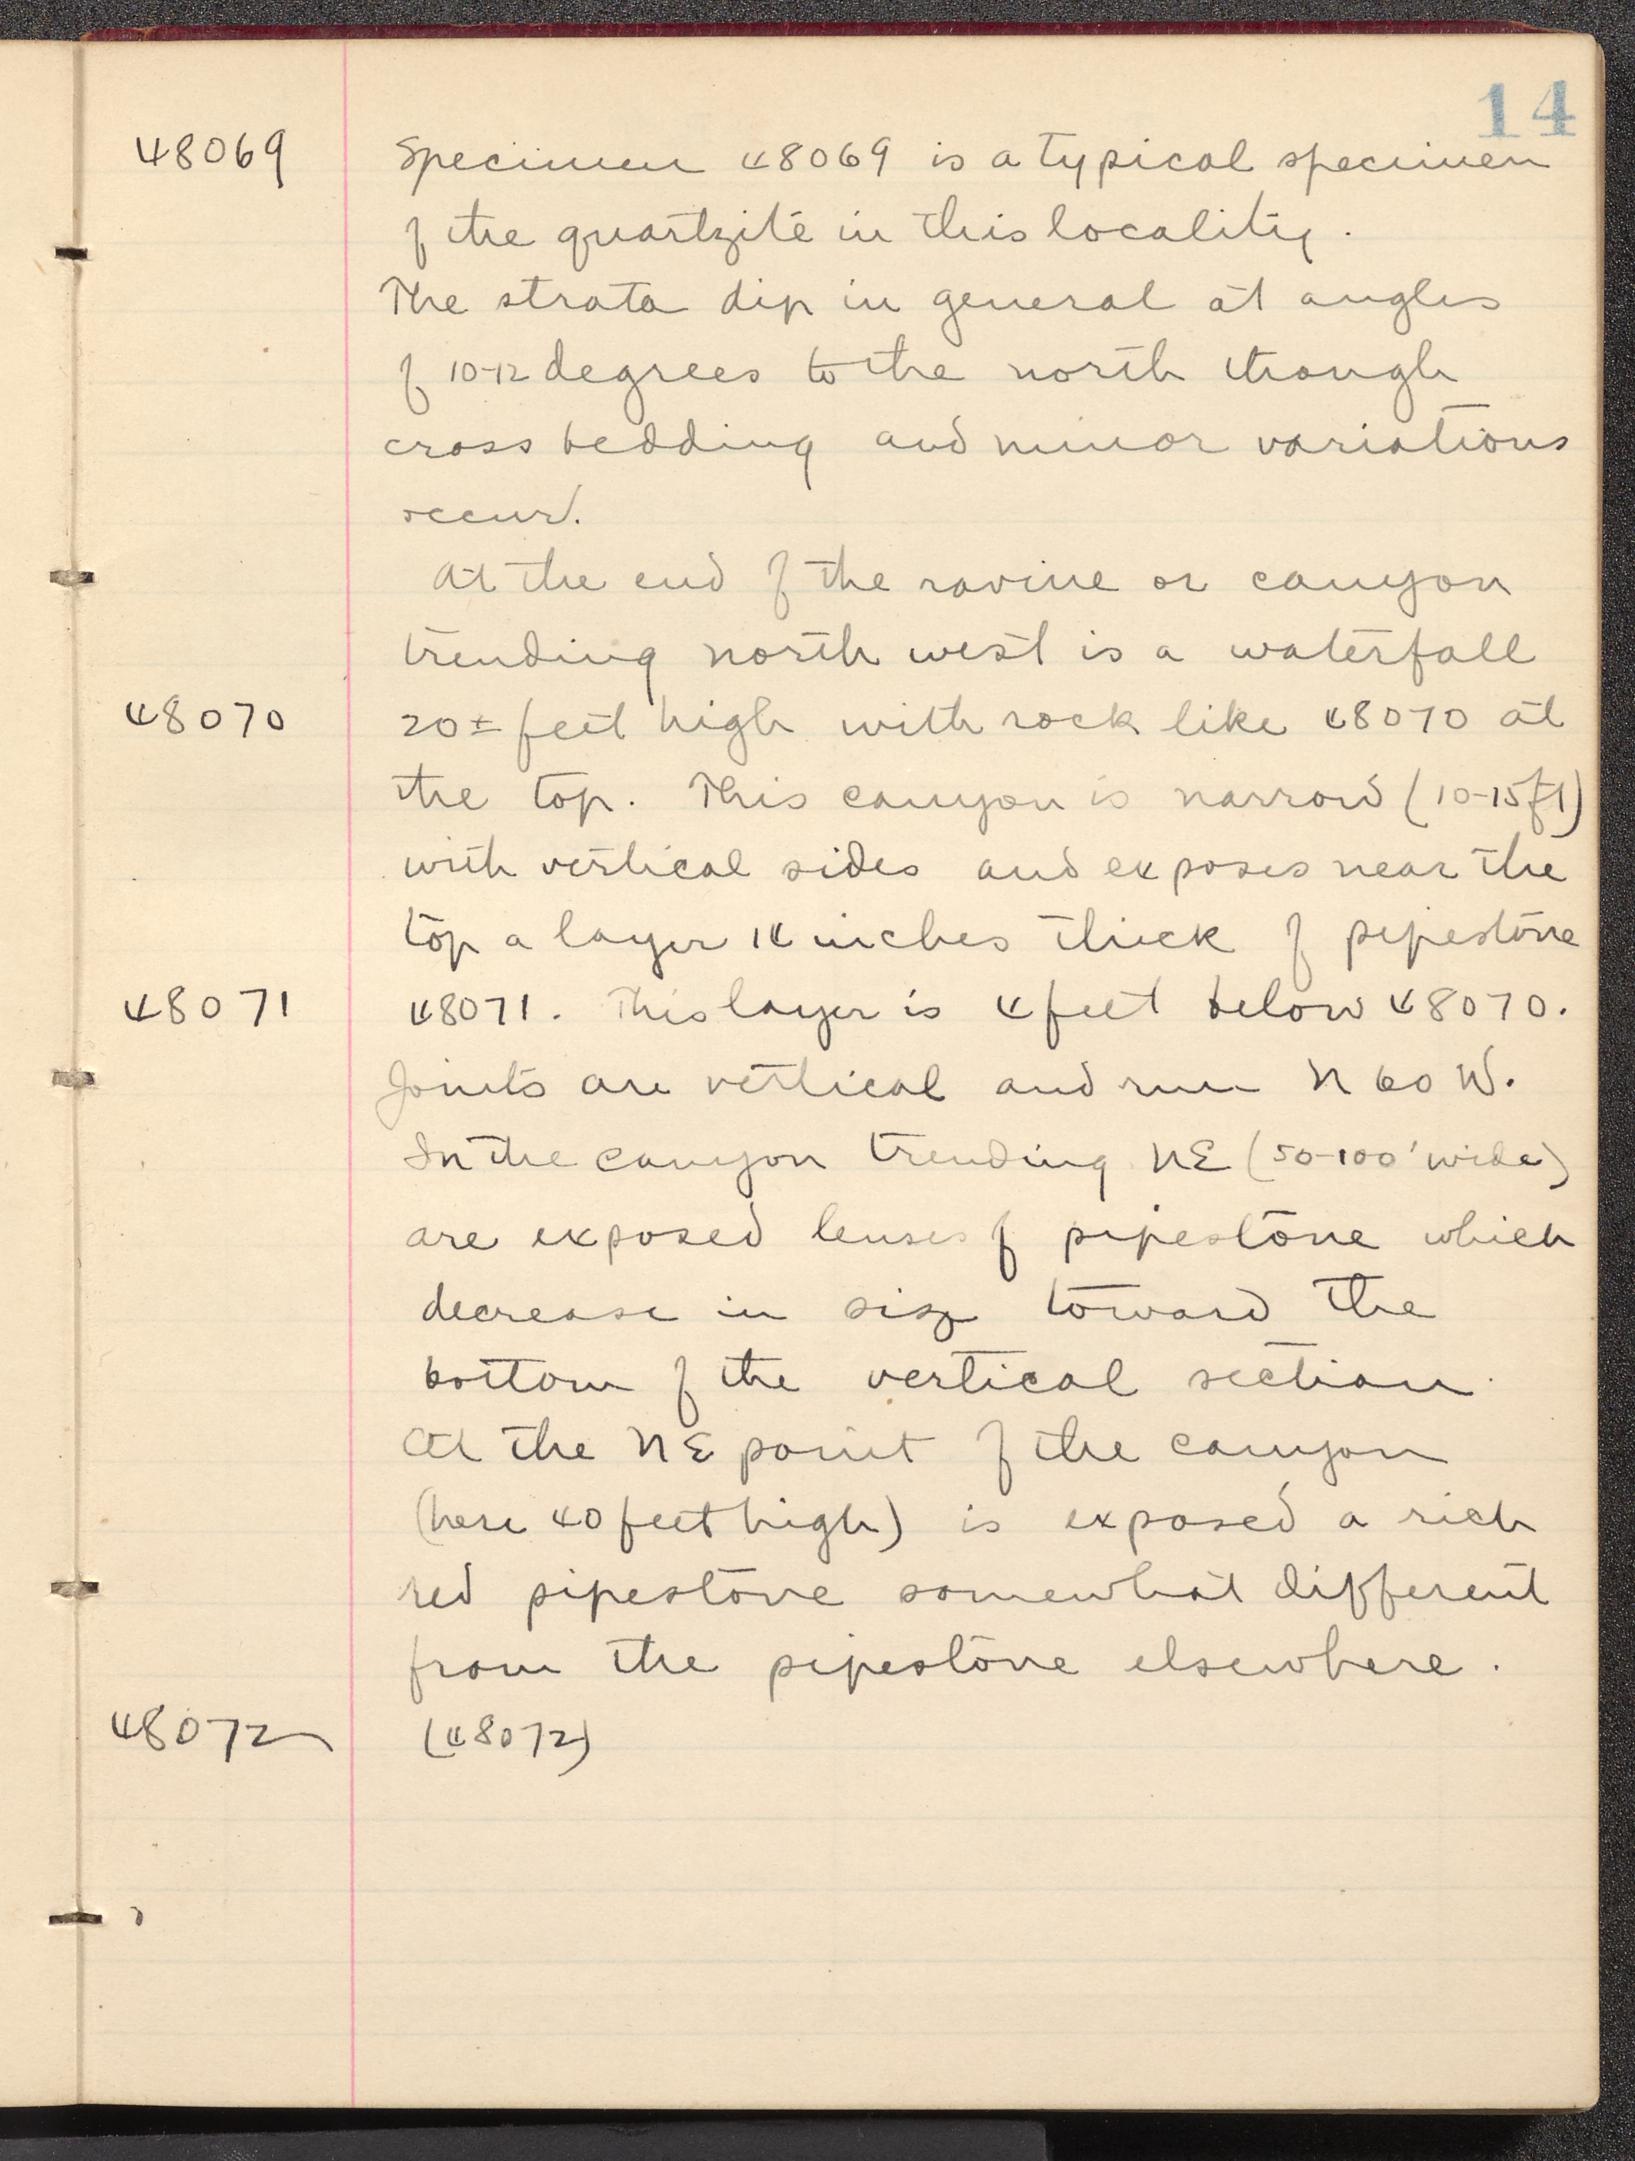 14
48069 Specimen 48069 is a typical specimen
of the quartzite in this locality.
The strata dip in general at angles
of 10-12 degrees to the north though
cross bedding and minor variations
occur.
At the end of the ravine or canyon
trending north west is a waterfall
48070 20± feet high with rock like 48070 at
the top. This canyon is narrow (10-15ft)
with vertical sides and exposes near the
top a layer 14 inches thick of pipestone
48071 48071. This layer is 4 feet below 48070.
Joints are vertical and run N 60 W.
In the canyon trending NE (50-100' wide)
are exposed lenses of pipestone which
decrease in size toward the
bottom of the vertical section.
At the NE point of the canyon
(here 40 feet high) is exposed a rich
red pipestone somewhat different
from the pipestone elsewhere.
48072 (48072)